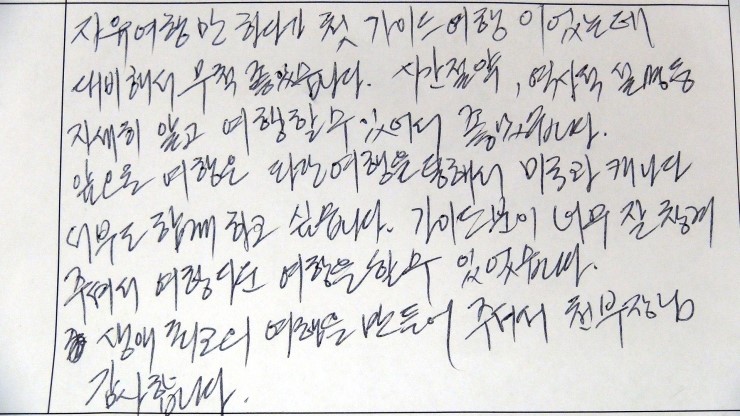 자유여행만 하다가 첫 가이드여행 이었는데
대비해서 무척 좋았습니다. 시간절약, 역사적 설명등
자세히 알고 여행할 수 있어서 좋았습니다.
앞으로 여행은 여행을 통해서 미국과 캐나다
서부도 함께 하고 싶습니다. 가이드분이 너무 잘 챙겨
주셔서 여행다운 여행을 할 수 있었습니다.
생애 최고의 여행을 만들어 주셔서 천부장님
감사합니다.